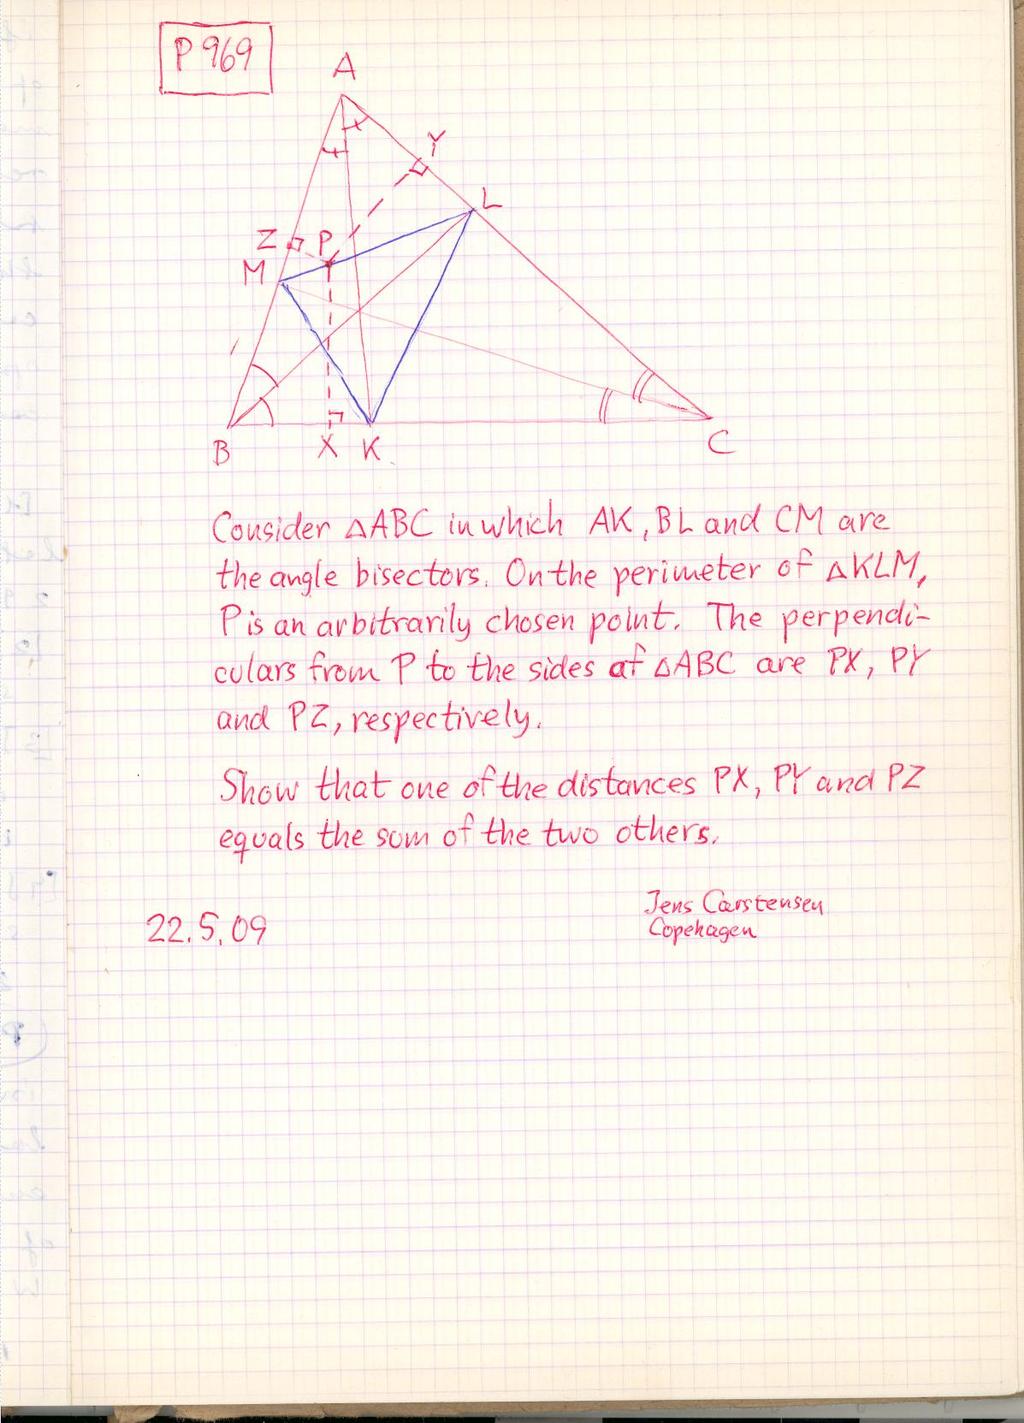 P 969
A
Y
L
Z P
M
B X K C
Consider △ABC in which AK, BL and CM are
the angle bisectors. On the perimeter of △KLM,
P is an arbitrarily chosen point. The perpendi-
culars from P to the sides of △ABC are PX, PY
and PZ, respectively.
Show that one of the distances PX, PY and PZ
equals the sum of the two others.
Jens Carstensen
22.5.09
Copehagen